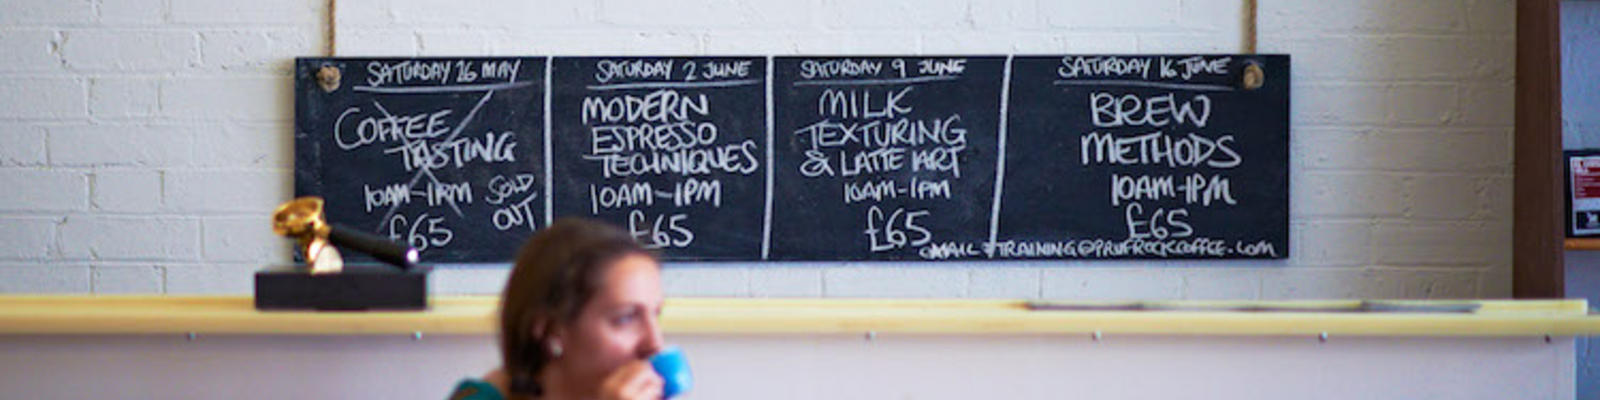 SATURDAY 26 MAY
COFFEE
TASTING
10AM-1PM
SOLD
OUT
£65
SATURDAY 2 JUNE
MODERN
ESPRESSO
TECHNIQUES
10AM-1PM
£65
SATURDAY 9 JUNE
MILK
TEXTURING
& LATTE ART
10AM-1PM
£65
SATURDAY 16 JUNE
BREW
METHODS
10AM-1PM
£65
EMAIL : TRAINING@PRUFROCKCOFFEE.COM